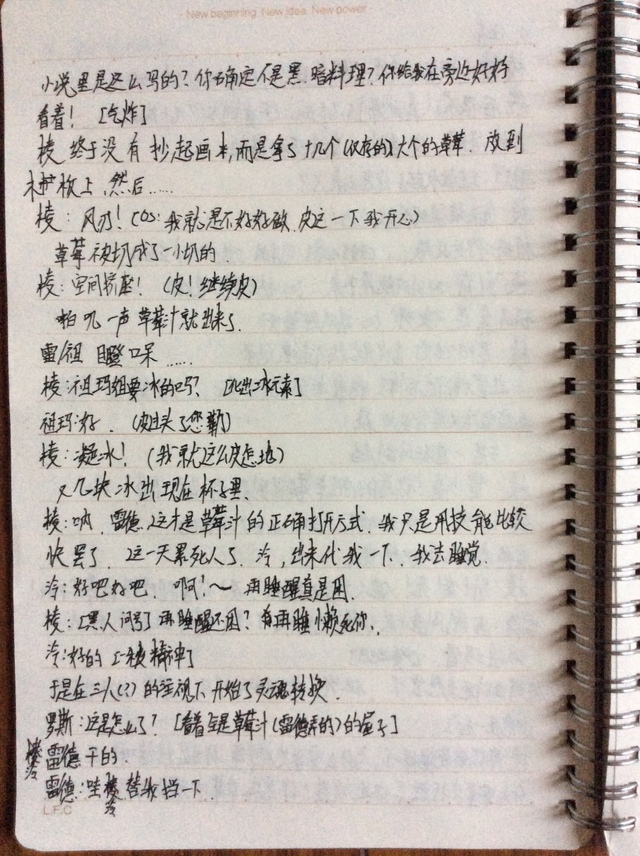 New beginning New idea New power
小说里是这么写的？你确定不是黑暗料理？你给我在旁边好好
看着！[气炸]
棱 终于没有抄起画本，而是拿了十几个(仅存的)大个的草莓. 放到
板上，然后……
棱：风刃！(OS：我就是不好好做，皮这一下我开心)
草莓被切成了一小块的
棱：空间挤压！(皮！继续皮)
啪叽一声草莓汁就出来了.
雷/祖 目瞪口呆……
棱：祖玛姐要冰的吗？[比出冰元素]
祖玛：好. (皮过头了您嘞)
棱：凝冰！(我就这么皮怎地)
又几块冰出现在杯子里.
棱：呐，雷德，这才是草莓汁的正确打开方式. 我只是用技能比较
快罢了. 这一天累死人了. 泠，出来代我一下，我去睡觉.
泠：好吧好吧. 啊！～ 再睡醒真是困.
棱：[黑人问号]再睡醒还困？ 再睡懒死你.
泠：好的 [被棱]
于是在三人(?)的注视下开始了灵魂转换.
罗斯：这是怎么了？[看着全是草莓汁(雷德弄的)的屋子]
棱泠 雷德干的.
雷德：哇棱泠替我挡一下
L.F.C